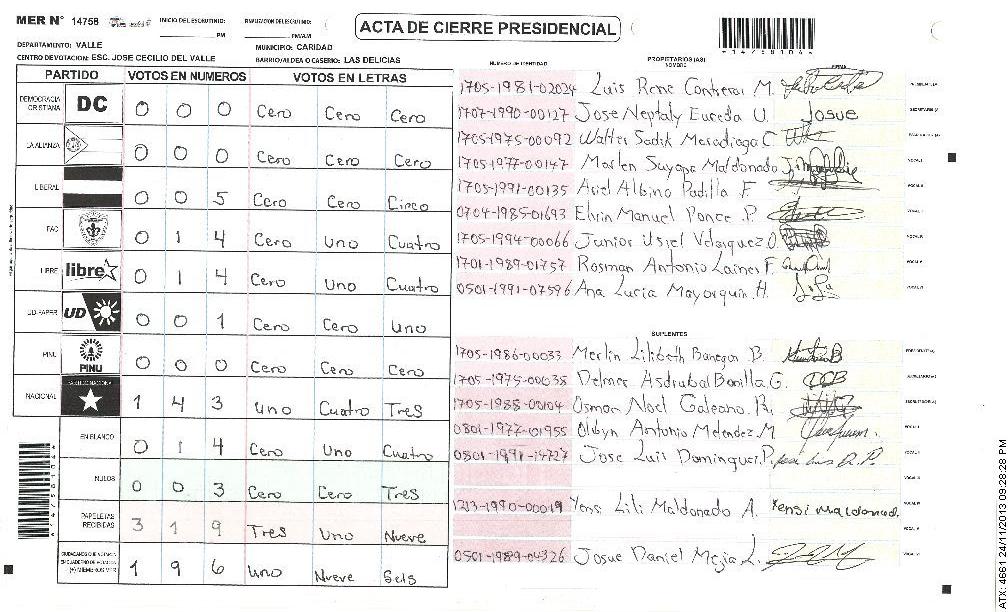 MER N° 14758 INICIO DEL ESCRUTINIO: PM FINALIZACION DEL ESCRUTINIO: PM/AM
ACTA DE CIERRE PRESIDENCIAL
DEPARTAMENTO: VALLE MUNICIPIO: CARIDAD
CENTRO DE VOTACION: ESC. JOSE CECILIO DEL VALLE BARRIO/ALDEA O CASERIO: LAS DELICIAS
*14758104*
PARTIDO VOTOS EN NUMEROS VOTOS EN LETRAS
DEMOCRACIA CRISTIANA DC 0 0 0 Cero Cero Cero
LA ALIANZA 0 0 0 Cero Cero Cero
LIBERAL 0 0 5 Cero Cero Cinco
PAC 0 1 4 Cero Uno Cuatro
LIBRE libre 0 1 4 Cero Uno Cuatro
UD-FAPER UD 0 0 1 Cero Cero Uno
PINU PINU 0 0 0 Cero Cero Cero
NACIONAL PARTIDO NACIONAL 1 4 3 Uno Cuatro Tres
EN BLANCO 0 1 4 Cero Uno Cuatro
NULOS 0 0 3 Cero Cero Tres
PAPELETAS RECIBIDAS 3 1 9 Tres Uno Nueve
CIUDADANOS QUE VOTARON EN CUADERNO DE VOTACION (+) MIEMBROS MER 1 9 6 Uno Nueve Seis
NUMERO DE IDENTIDAD PROPIETARIOS (AS) NOMBRE FIRMA
1705-1981-02024 Luis Rene Contreras M.
1707-1990-00127 Jose Neptaly Euceda U. Josue
1705-1975-00092 Walter Sadik Meradiaga C.
1705-1977-00147 Marlen Suyapa Maldonado J.
1705-1991-00135 Ariel Albino Padilla F.
0704-1985-01693 Elvin Manuel Ponce P.
1705-1994-00066 Junior Usiel Velasquez O.
1701-1989-01757 Rosman Antonio Laines F.
0501-1991-07596 Ana Lucia Mayorquin H.
SUPLENTES
1705-1986-00033 Merlin Lilibeth Banegas B.
1705-1975-00038 Delmer Asdrubal Bonilla G.
1705-1988-00104 Osman Noel Galeano R.
0801-1977-01955 Olbyn Antonio Melendez M.
0801-1991-14727 Jose Luis Dominguez P.
1213-1990-00019 Yensi Lili Maldonado A. Yensi Maldonado
0501-1989-04326 Josue Daniel Mejia L.
ATX: 4661 24/11/2013 09:28:28 PM